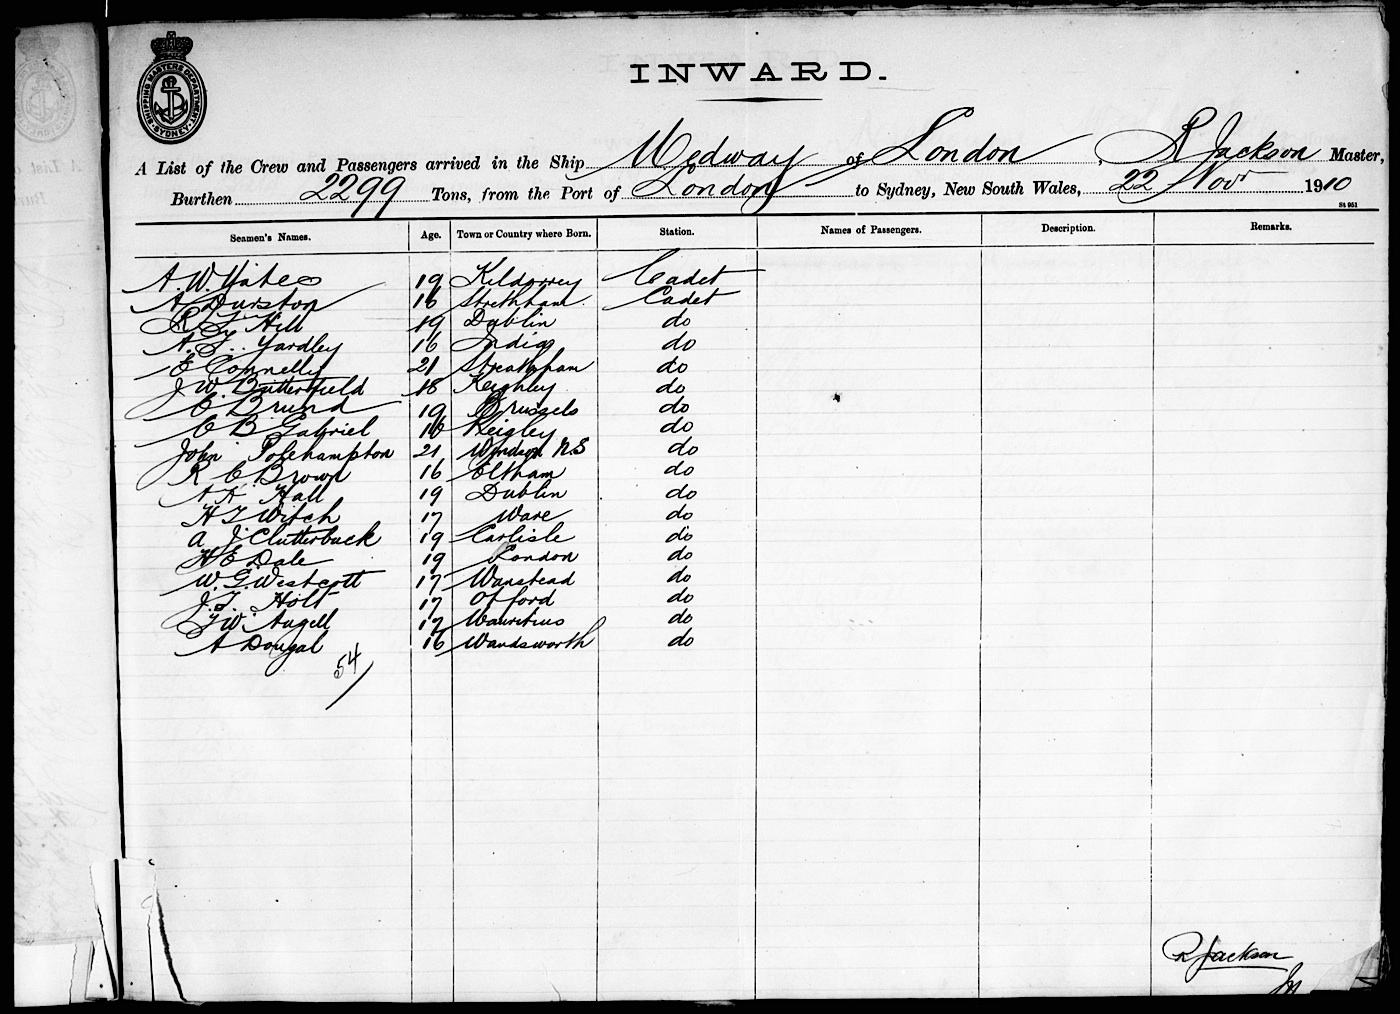 SHIPPING MASTERS DEPARTMENT SYDNEY
INWARD.
A List of the Crew and Passengers arrived in the Ship Medway of London, R Jackson Master,
Burthen 2299 Tons, from the Port of London to Sydney, New South Wales, 22 Novr 1910
St 951
Seamen's Names. Age. Town or Country where Born. Station. Names of Passengers. Description. Remarks.
A. W. Yates 19 Kildorrey Cadet
A Durston 16 Stretham Cadet
R. F. Hill 19 Dublin do
A. F. Yardley 16 India do
E Connelly 21 Streatham do
J W. Butterfield 18 Keighley do
C Brund 19 Brussels do
C B Gabriel 16 Keigley do
John Polehampton 21 Windsor N.S do
R C Brown 16 Eltham do
A H Hall 19 Dublin do
H F Witch 17 Ware do
A J Clutterbuck 19 Carlisle do
H E Dale 19 London do
W. G. Westcott 17 Wanstead do
J. F. Holt 17 Offord do
F W. Angell 17 Mauritius do
A Dougal 16 Wandsworth do
54
R Jackson